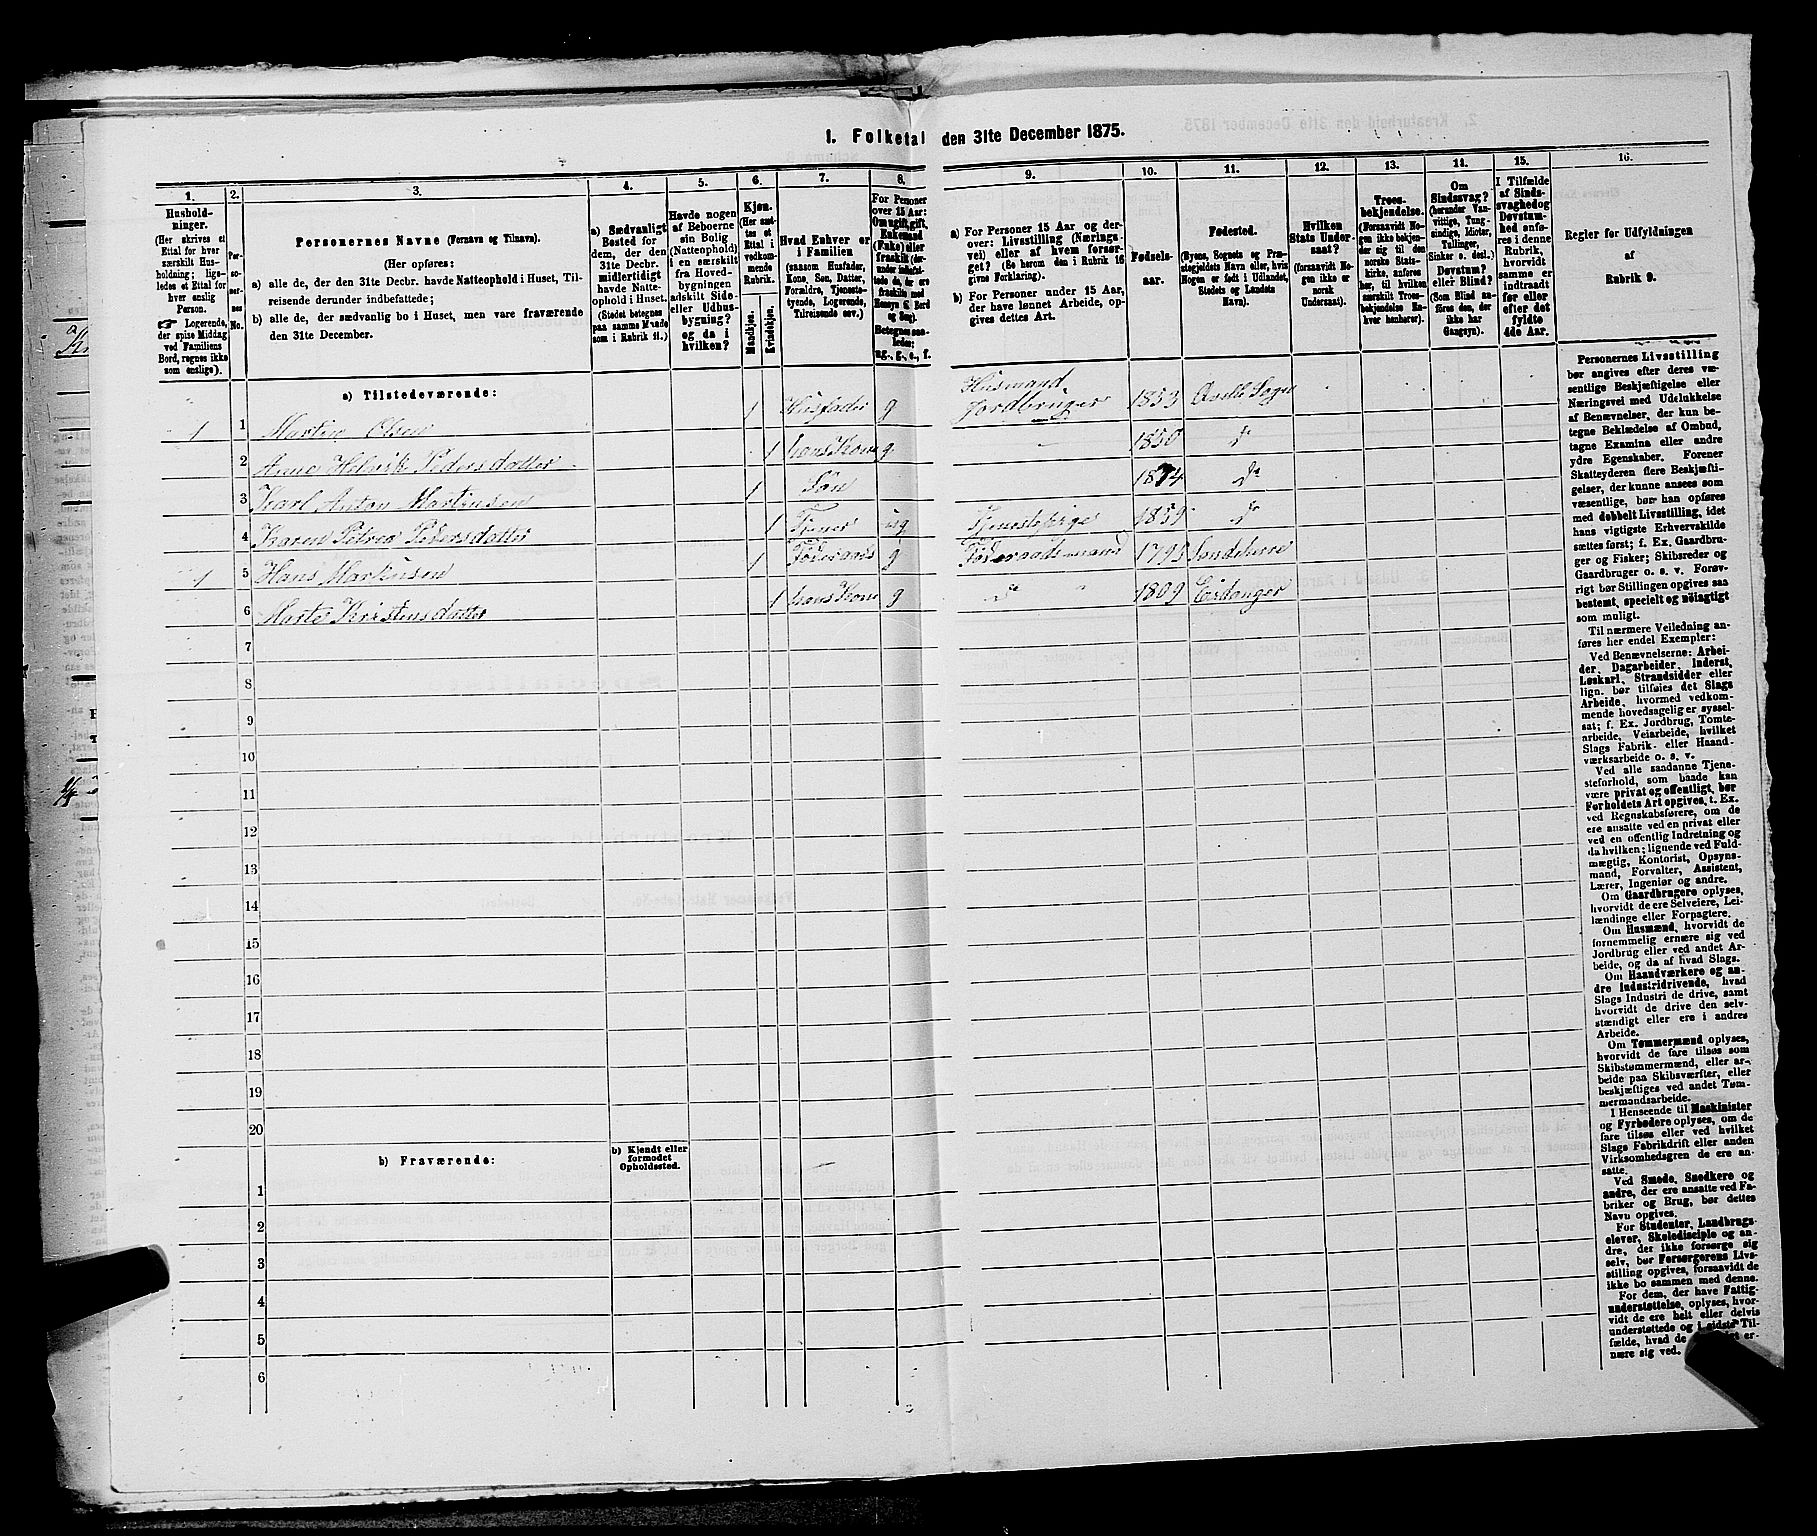 1. Folketal den 31te December 1875.
1.
2.
3.
4.
5.
6.
7.
8.
9.
10.
11.
12.
13.
14.
15.
16.
Hushold-
ninger.
(Her skrives et
Ettal for hver
særskilt Hus-
holdning; lige-
ledes et Ettal for
hver enslig
Person.
☞ Logerende,
der spise Middag
ved Familiens
Bord, regnes ikke
som enslige).
Per-
so-
ner-
nes
No.
Personernes Navne (Fornavn og Tilnavn).
(Her opføres:
a) alle de, der den 31te Decbr. havde Natteophold i Huset, Til-
reisende derunder indbefattede;
b) alle de, der sædvanlig bo i Huset, men vare fraværende
den 31te December.
a) Sædvanligt
Bosted for
dem, der den
31te Decbr.
midlertidigt
havde Natte-
ophold i Huset.
(Stedet betegnes
paa samme Maade
som i Rubrik 11.)
Havde nogen
af Beboerne
sin Bolig
(Natteophold)
i en særskilt
fra Hoved-
bygningen
adskilt Side-
eller Udhus-
bygning?
og da i
hvilken?
Kjøn.
(Her sæt-
tes et
Ettal i
vedkom-
mende
Rubrik.
Mandkjøn.
Kvindekjøn.
Hvad Enhver er
i Familien
(saasom Husfader,
Kone, Søn, Datter,
Forældre, Tjeneste-
tyende, Logerende,
Tilreisende osv.)
For Personer
over 15 Aar:
Om ugift, gift,
Enkemand
(Enke) eller
fraskilt (der-
under indbefat-
tede de, der ere
fraskilte med
Hensyn til Bord
og Seng).
Betegnes saa-
ledes:
ug., g., e., f.
a) For Personer 15 Aar og der-
over: Livsstilling (Nærings-
vei) eller af hvem forsør-
get? (Se herom den i Rubrik 16
givne Forklaring).
b) For Personer under 15 Aar,
der have lønnet Arbeide, op-
gives dettes Art.
Fødsels-
aar.
Fødested.
(Byens, Sognets og Præ-
stegjeldets Navn eller, hvis
Nogen er født i Udlandet,
Stedets og Landets
Navn).
Hvilken
Stats Under-
saat?
(forsaavidt No-
gen ikke er
norsk
Undersaat).
Troes-
bekjendelse.
(Forsaavidt No-
gen ikke bekjen-
der sig til den
norske Stats-
kirke, anføres
her, til hvilken
særskilt Troes-
bekjendelse En-
hver henhører).
Om
Sindssvag?
(herunder Van-
vittige, Tung-
sindige, Idioter,
Tullinger,
Sinker o. desl.)
Døvstum?
eller Blind?
(Som Blind an-
føres den, der
ikke har
Gangsyn).
I Tilfælde
af Sinds-
svaghed og
Døvstum-
hed anfø-
res i denne
Rubrik,
hvorvidt
samme er
indtraadt
før eller
efter det
fyldte
4de Aar.
Regler for Udfyldningen
af
Rubrik 9.
a) Tilstedeværende:
1 1 Martin Olsen 1 Husfader g Husmand Jordbruger 1853 Sogn
2 Anne Pedersdatter 1 hans Kone g 1850 Do
3 Karl Anton Martinsen 1 Søn 1874 Do
4 Karen Petrea Pedersdatter 1 Tjener ug Tjenestepige 1859 Do
1 5 Hans Martinsen 1 Føderaads g Føderaadsmand 1795
6 Marte Kristensdatter 1 hans Kone g Do 1809 Eidanger
7
8
9
10
11
12
13
14
15
16
17
18
19
20
b) Fraværende:
b) Kjendt eller
formodet
Opholdssted.
1
2
3
4
5
6
Personernes Livsstilling
bør angives efter deres væ-
sentlige Beskjæftigelse eller
Næringsvei med Udelukkelse
af Benævnelser, der kun be-
tegne Beklædelse af Ombud,
tagne Examina eller andre
ydre Egenskaber. Forener
Skatteyderen flere Beskjæfti-
gelser, der kunne ansees som
væsentlige, bør han opføres
med dobbelt Livsstilling, idet
hans vigtigste Erhvervskilde
sættes først; f. Ex. Gaardbru-
ger og Fisker; Skibsreder og
Gaardbruger o. s. v. Forøv-
rigt bør Stillingen opgives saa
bestemt, specielt og nøiagtigt
som muligt.
Til nærmere Veiledning an-
føres her endel Exempler:
Ved Benævnelserne: Arbei-
der, Dagarbeider, Inderst,
Løskarl, Strandsidder eller
lign. bør tilføies det Slags
Arbeide, hvormed vedkom-
mende hovedsagelig er syssel-
sat; f. Ex. Jordbrug, Tomte-
arbeide, Veiarbeide, hvilket
Slags Fabrik- eller Haand-
værksarbeide o. s. v.
Ved alle saadanne Tjene-
steforhold, som baade kan
være privat og offentligt, bør
Forholdets Art opgives, t. Ex.
ved Regnskabsførere, om de
ere ansatte ved en privat eller
ved en offentlig Indretning og
da hvilken; lignende ved Fuld-
mægtig, Kontorist, Opsyns-
mand, Forvalter, Assistent,
Lærer, Ingeniør og andre.
Om Gaardbrugere oplyses,
hvorvidt de ere Selveiere, Lei-
lændinge eller Forpagtere.
Om Husmænd, hvorvidt de
fornemmelig ernære sig ved
Jordbrug eller ved andet Ar-
beide, og da af hvad Slags.
Om Haandværkere og an-
dre Industridrivende, hvad
Slags Industri de drive, samt
hvorvidt de drive den selv-
stændigt eller ere i andres
Arbeide.
Om Tømmermænd oplyses,
hvorvidt de fare tilsøs som
Skibstømmermænd, eller ar-
beide paa Skibsværfter, eller
beskjæftiges ved andet Tøm-
mermandsarbeide.
I Henseende til Maskinister
og Fyrbødere oplyses, om de
fare tilsøs eller ved hvilket
Slags Fabrikdrift eller anden
Virksomhedsgren de ere an-
satte.
Ved Smede, Snedkere og
andre, der ere ansatte ved Fa-
briker og Brug, bør dettes
Navn opgives.
For Studenter, Landbrugs-
elever, Skoledisciple og an-
dre, der ikke forsørge sig
selv, bør Forsørgerens Livs-
stilling opgives, forsaavidt de
ikke bo sammen med denne.
For dem, der have Fattig-
understøttelse, oplyses, hvor-
vidt de ere helt eller delvis
understøttede og i sidste Til-
fælde, hvad de er-
nære sig ved.